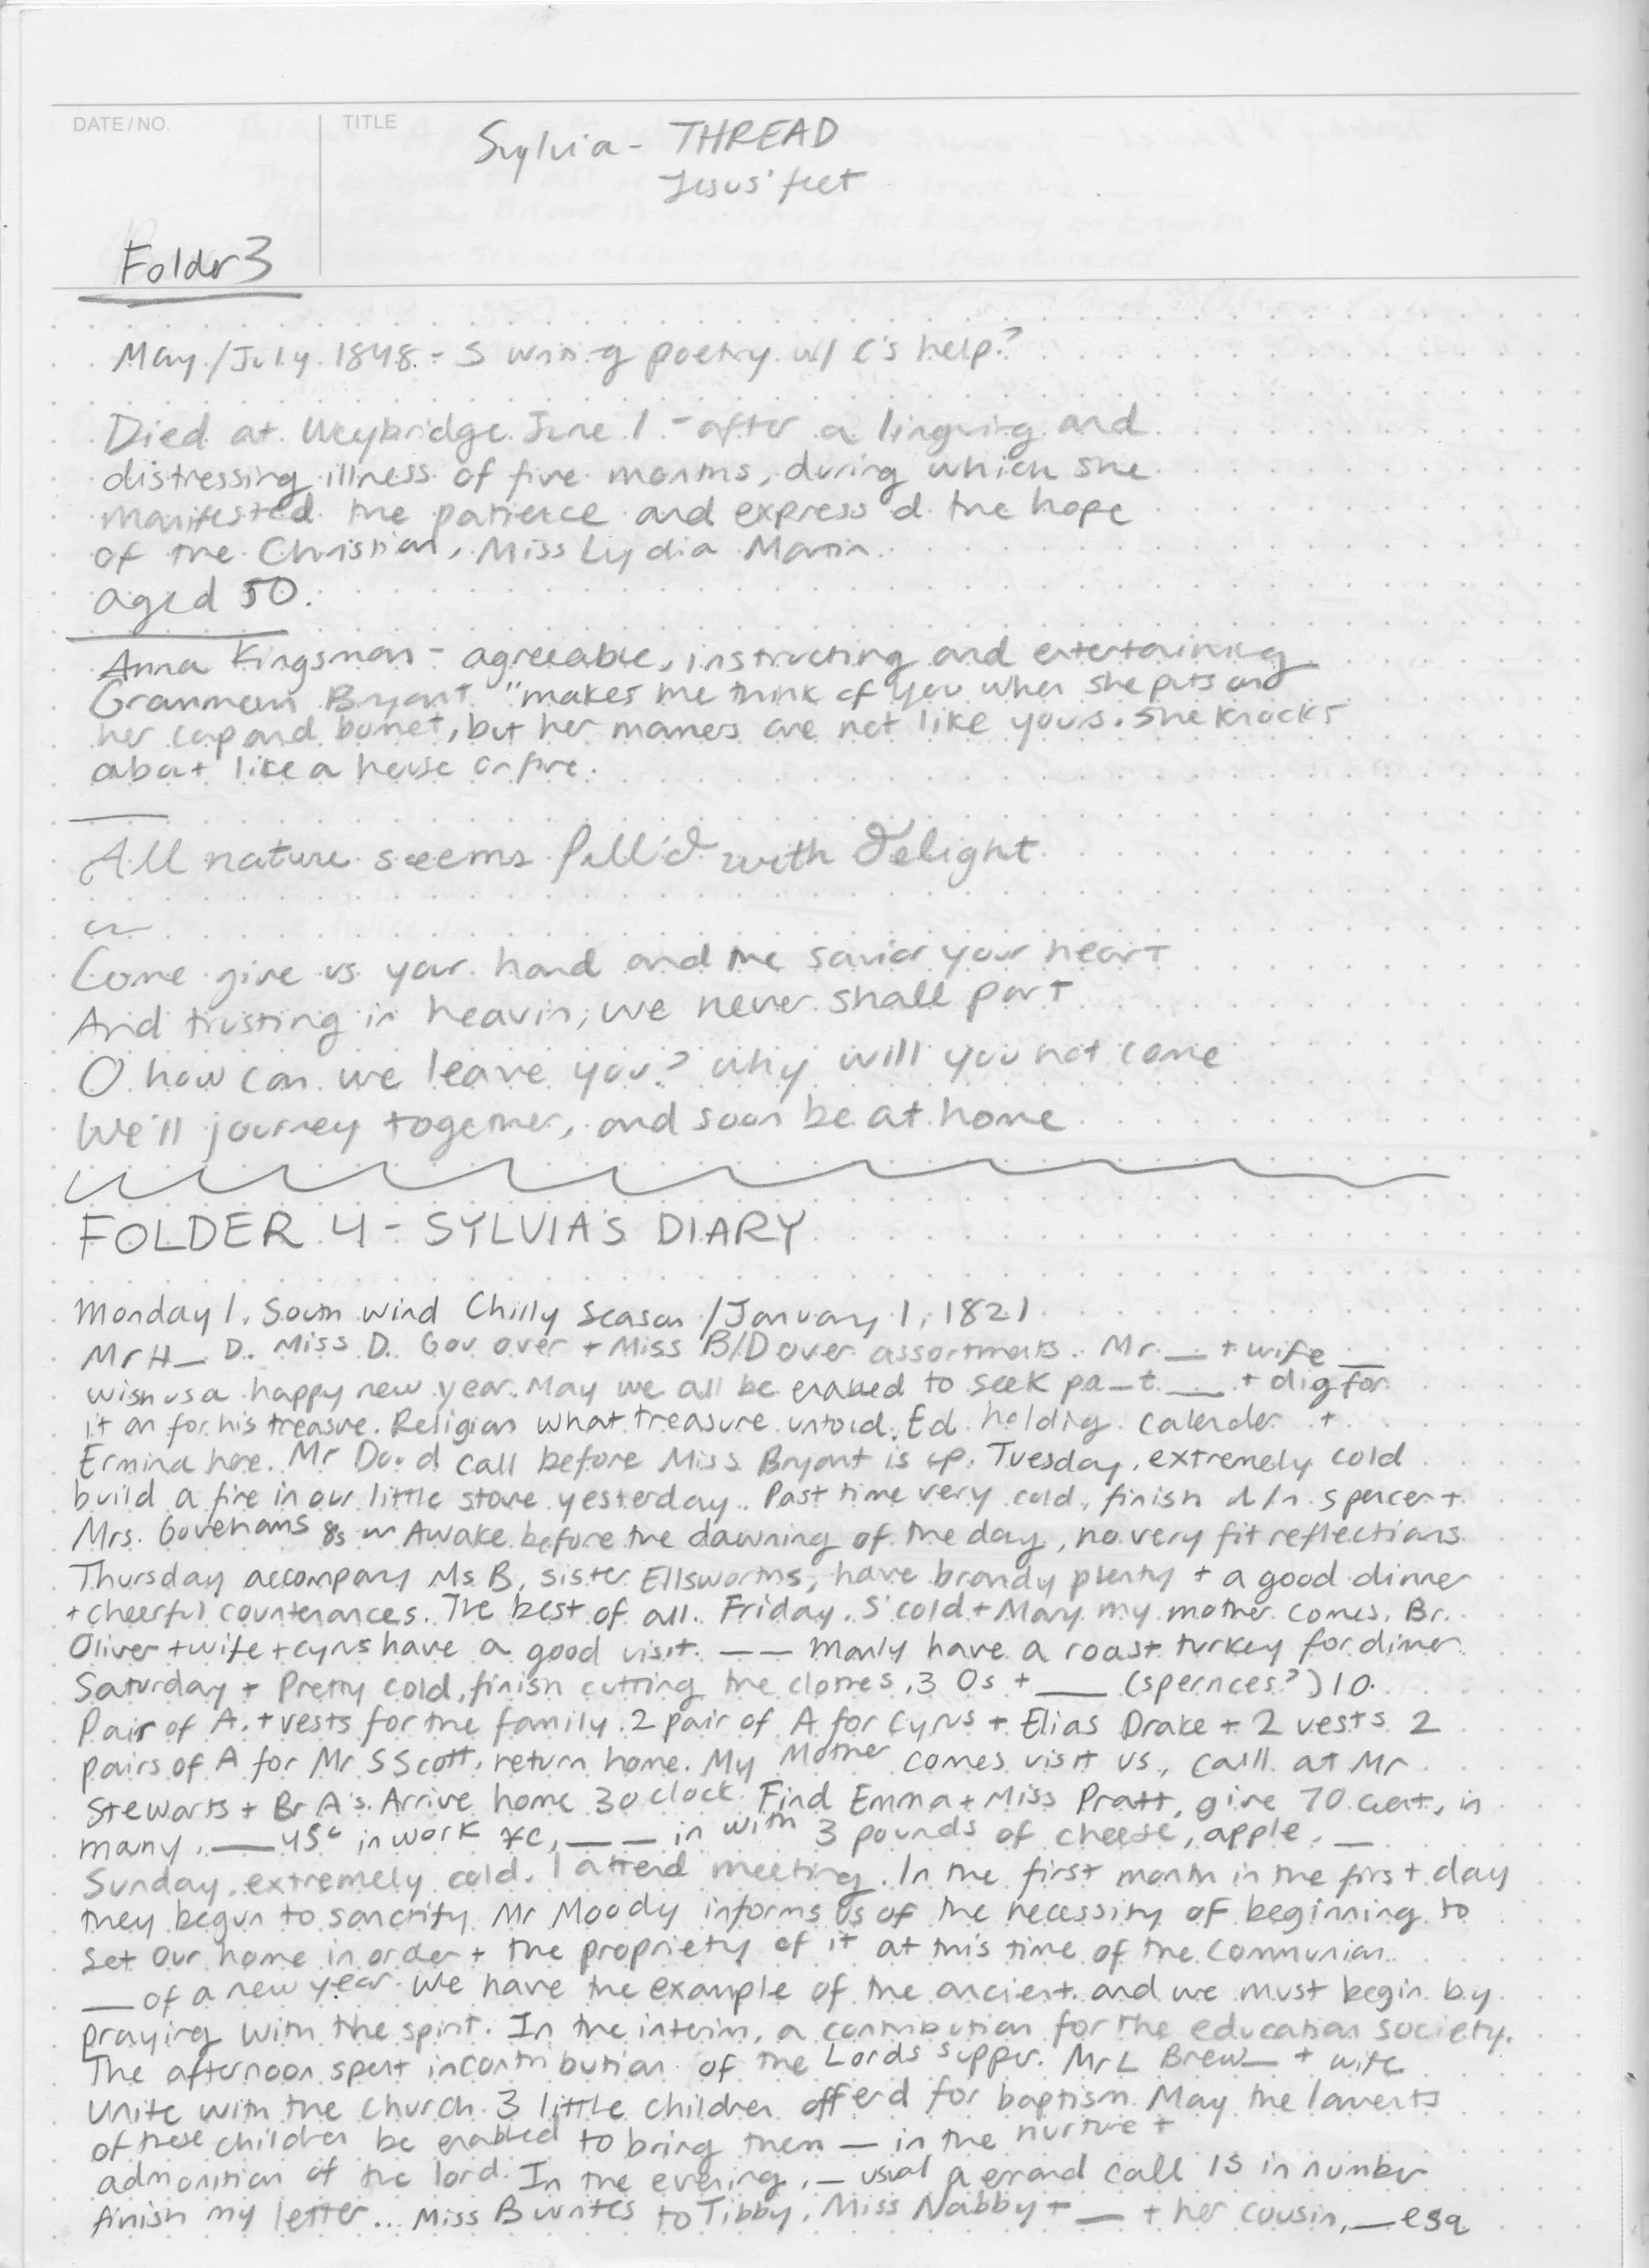 DATE/NO.
TITLE
Sylvia - THREAD
Jesus' feet
Folder 3
May/July 1848 - S writing poetry w/ C's help?
Died at Weybridge June 1 - after a lingering and
distressing illness of five months, during which she
manifested the patience and express'd the hope
of the Christian, Miss Lydia Martin
aged 50.
Anna Kingsman - agreeable, instructing and entertaining
Bryant "makes me think of you when she puts on
her cap and bonnet, but her manners are not like yours. She knocks
about like a house on fire.
All nature seems fill'd with delight
Come give us your hand and the savior your heart
And trusting in heavin, we never shall part
O how can we leave you? why will you not come
We'll journey together, and soon be at home
FOLDER 4 - SYLVIA'S DIARY
Monday 1. South wind Chilly Season / January 1, 1821
Mr H_ D. Miss D. Gov over + Miss B/D over assortments. Mr. __ + wife __
wish us a happy new year. May we all be enabled to seek pa_t __ + dig for
it on for his treasure. Religion what treasure untold. Ed holding calender +
Ermina here. Mr call before Miss Bryant is up. Tuesday, extremely cold
build a fire in our little stove yesterday. Past time very cold, finish Spencer +
Mrs. Awake before the dawning of the day, no very fit reflections
Thursday accompany Ms B, sister Ellsworths, have brandy plenty + a good dinner
+ cheerful countenances. The best of all. Friday. S' cold + Mary my mother comes. Br.
Oliver + wife + Cyrus have a good visit. __ __ manly have a roast turkey for dinner
Saturday + Pretty cold, finish cutting the clothes, 3 0s + __ (spernces?) 10.
Pair of A. + vests for the family. 2 pair of A for Cyrus + Elias Drake + 2 vests 2
pairs of A for Mr S Scott, return home. My Mother comes visit us, call at Mr
Stewarts + Br A's. Arrive home 3 oclock. Find Emma + Miss Pratt, give 70 in
many. __ 45c in work &c, __ __ in with 3 pounds of cheese, apple. __
Sunday. extremely cold. I attend meeting. In the first month in the first day
they begun to sanctify. Mr Moody informs us of the necessity of beginning to
set our home in order + the propriety of it at this time of the Communion
__ of a new year. We have the example of the ancient and we must begin by
praying with the spirit. In the interim, a contribution for the education society.
The afternoon spent in contribution of the Lords supper. Mr L Brew_ + wife
Unite with the church. 3 little children offerd for baptism. May the
of these children be enabled to bring them __ in the nurture +
admonition of the lord. In the evening, __ usual a errand call 15 in number
finish my letter... Miss B writes to Tibby. Miss Nabby + __ + her cousin, __ esq